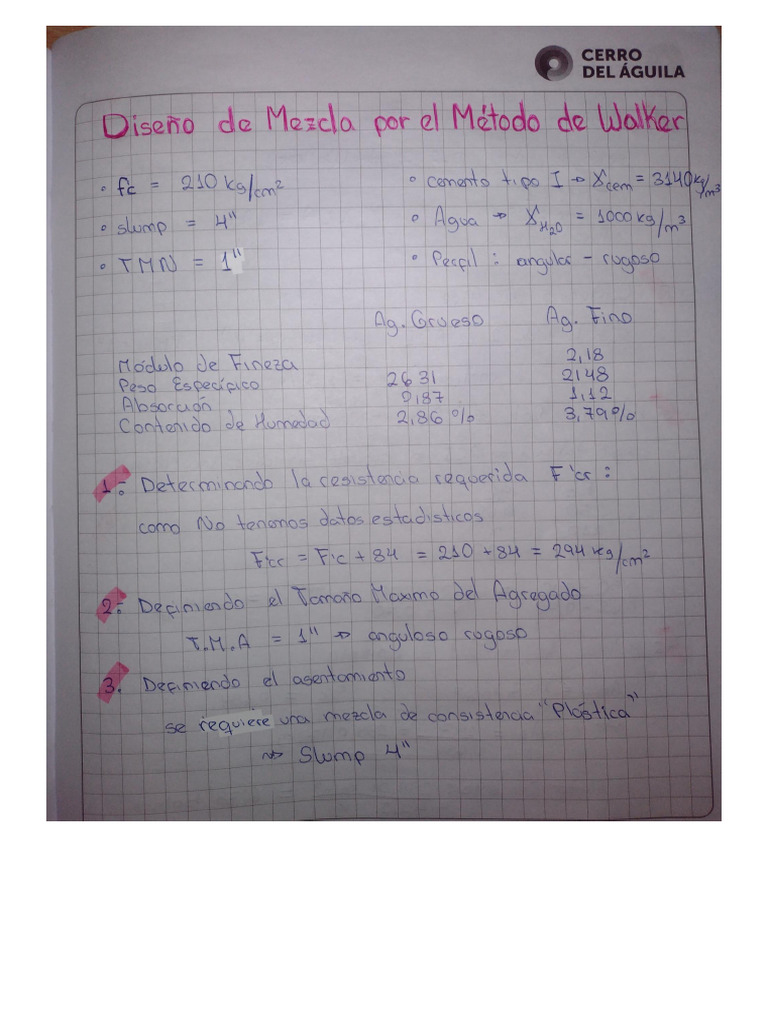 CERRO
DEL ÁGUILA
Diseño de Mezcla por el Método de Walker
• fc = 210 kg/cm²
• slump = 4"
• TMN = 1"
• cemento tipo I → γcem = 3140 kg/m³
• Agua → γH₂O = 1000 kg/m³
• Perfil : angular - rugoso
Ag. Grueso Ag. Fino
Módulo de Fineza 2,18
Peso Específico 2631 2148
Absorción 0,87 1,12
Contenido de Humedad 2,86 % 3,79%
1: Determinando la resistencia requerida F'cr :
como No tenemos datos estadisticos
F'cr = F'c + 84 = 210 + 84 = 294 kg/cm²
2: Definiendo el Tamaño Maximo del Agregado
T.M.A = 1" → anguloso rugoso
3. Definiendo el asentamiento
se requiere una mezcla de consistencia "Plástica"
⇒ Slump 4"